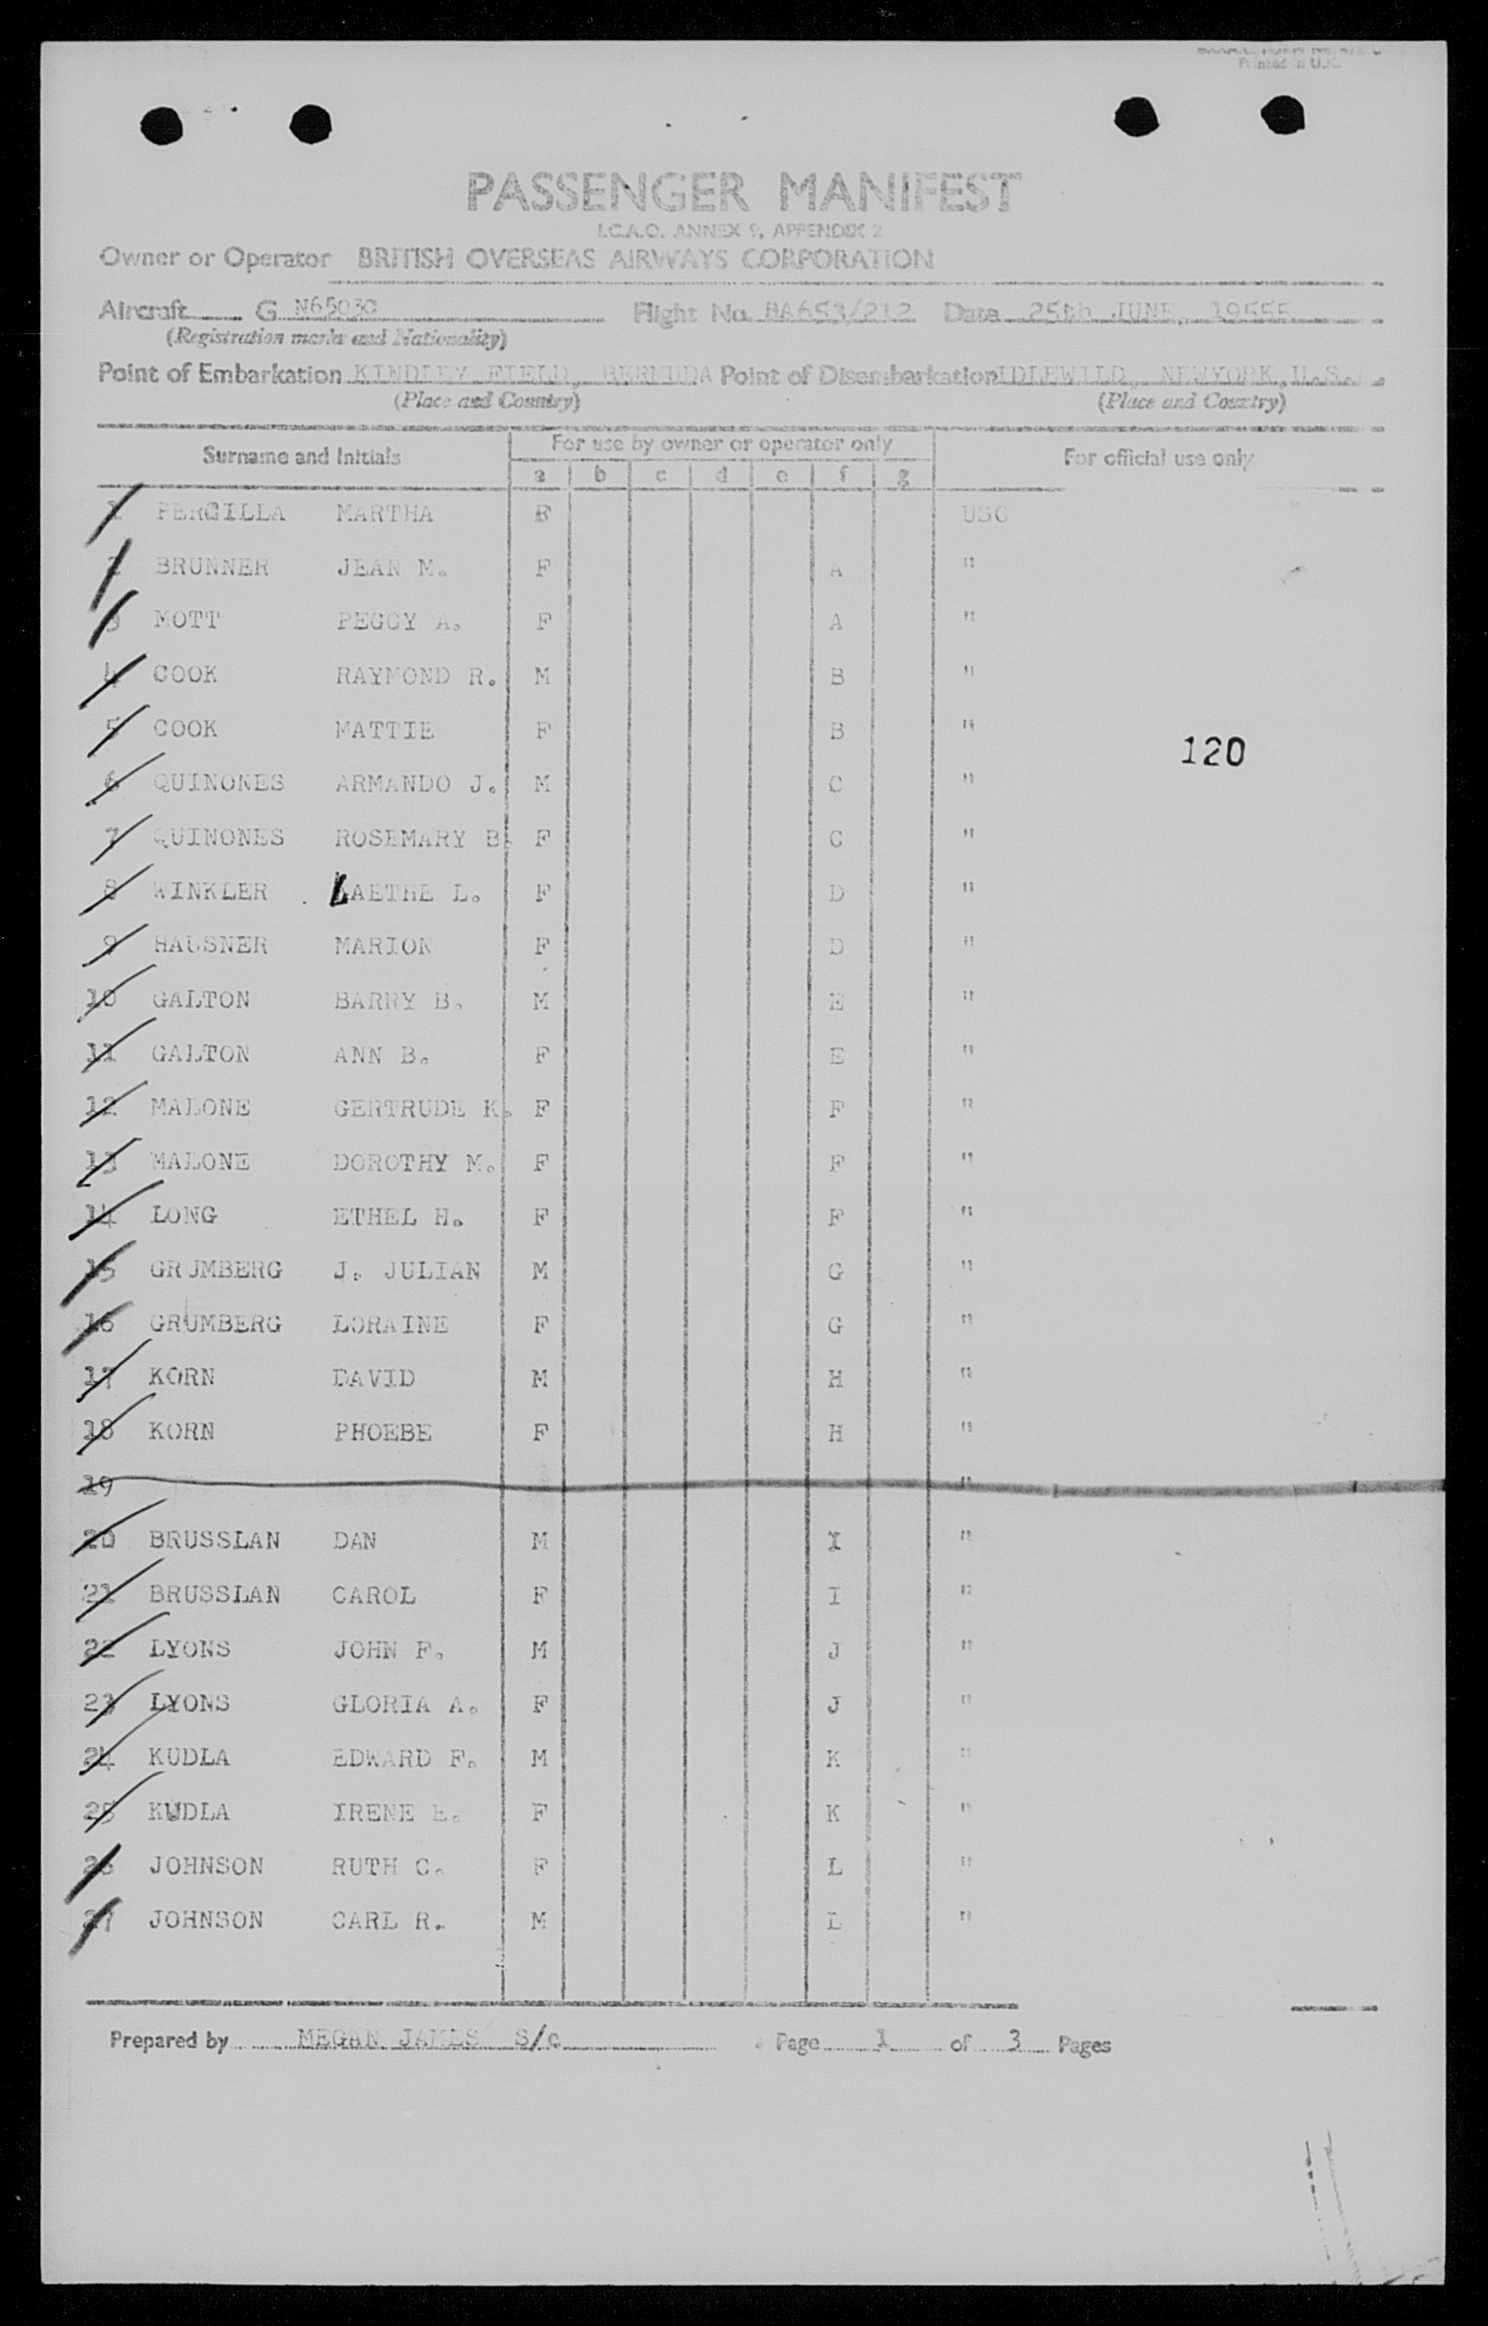 Printed in U.K.
PASSENGER MANIFEST
I.C.A.O. ANNEX 9, APPENDIX 2
Owner or Operator BRITISH OVERSEAS AIRWAYS CORPORATION
Aircraft G N6503C Flight No. BA653/212 Date 25th JUNE, 19555
(Registration marks and Nationality)
Point of Embarkation KINDLEY FIELD, BERMUDA Point of Disembarkation IDLEWILD, NEWYORK, U.S.
(Place and Country) (Place and Country)
Surname and Initials For use by owner or operator only For official use only
a b c d e f g
1 PERGILLA MARTHA F USC
2 BRUNNER JEAN M. F A "
3 MOTT PEGGY A. F A "
4 COOK RAYMOND R. M B "
5 COOK MATTIE F B "
120
6 QUINONES ARMANDO J. M C "
7 QUINONES ROSEMARY B. F C "
8 WINKLER LAETHE L. F D "
9 HAUSNER MARION F D "
10 GALTON BARRY B. M E "
11 GALTON ANN B. F E "
12 MALONE GERTRUDE K. F F "
13 MALONE DOROTHY M. F F "
14 LONG ETHEL H. F F "
15 GRJMBERG J. JULIAN M G "
16 GRUMBERG LORAINE F G "
17 KORN DAVID M H "
18 KORN PHOEBE F H "
19 "
20 BRUSSLAN DAN M I "
21 BRUSSLAN CAROL F I "
22 LYONS JOHN F. M J "
23 LYONS GLORIA A. F J "
24 KUDLA EDWARD F. M K "
25 KUDLA IRENE E. F K "
26 JOHNSON RUTH C. F L "
27 JOHNSON CARL R. M L "
Prepared by MEGAN JAMES S/c Page 1 of 3 Pages